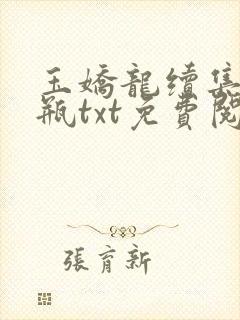 玉嬌龍續集
瓶txt免費閱
張育新